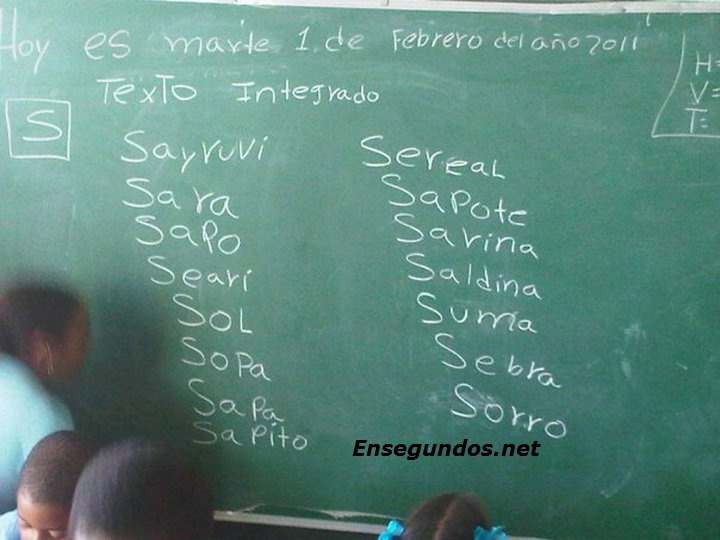 Hoy es marte 1 de Febrero del año 2011
Texto Integrado
H=
V=
T=
S
Sayruvi
Sara
Sapo
Seari
Sol
Sopa
Sapa
Sapito
Sereal
Sapote
Sarina
Saldina
Suma
Sebra
Sorro
Ensegundos.net